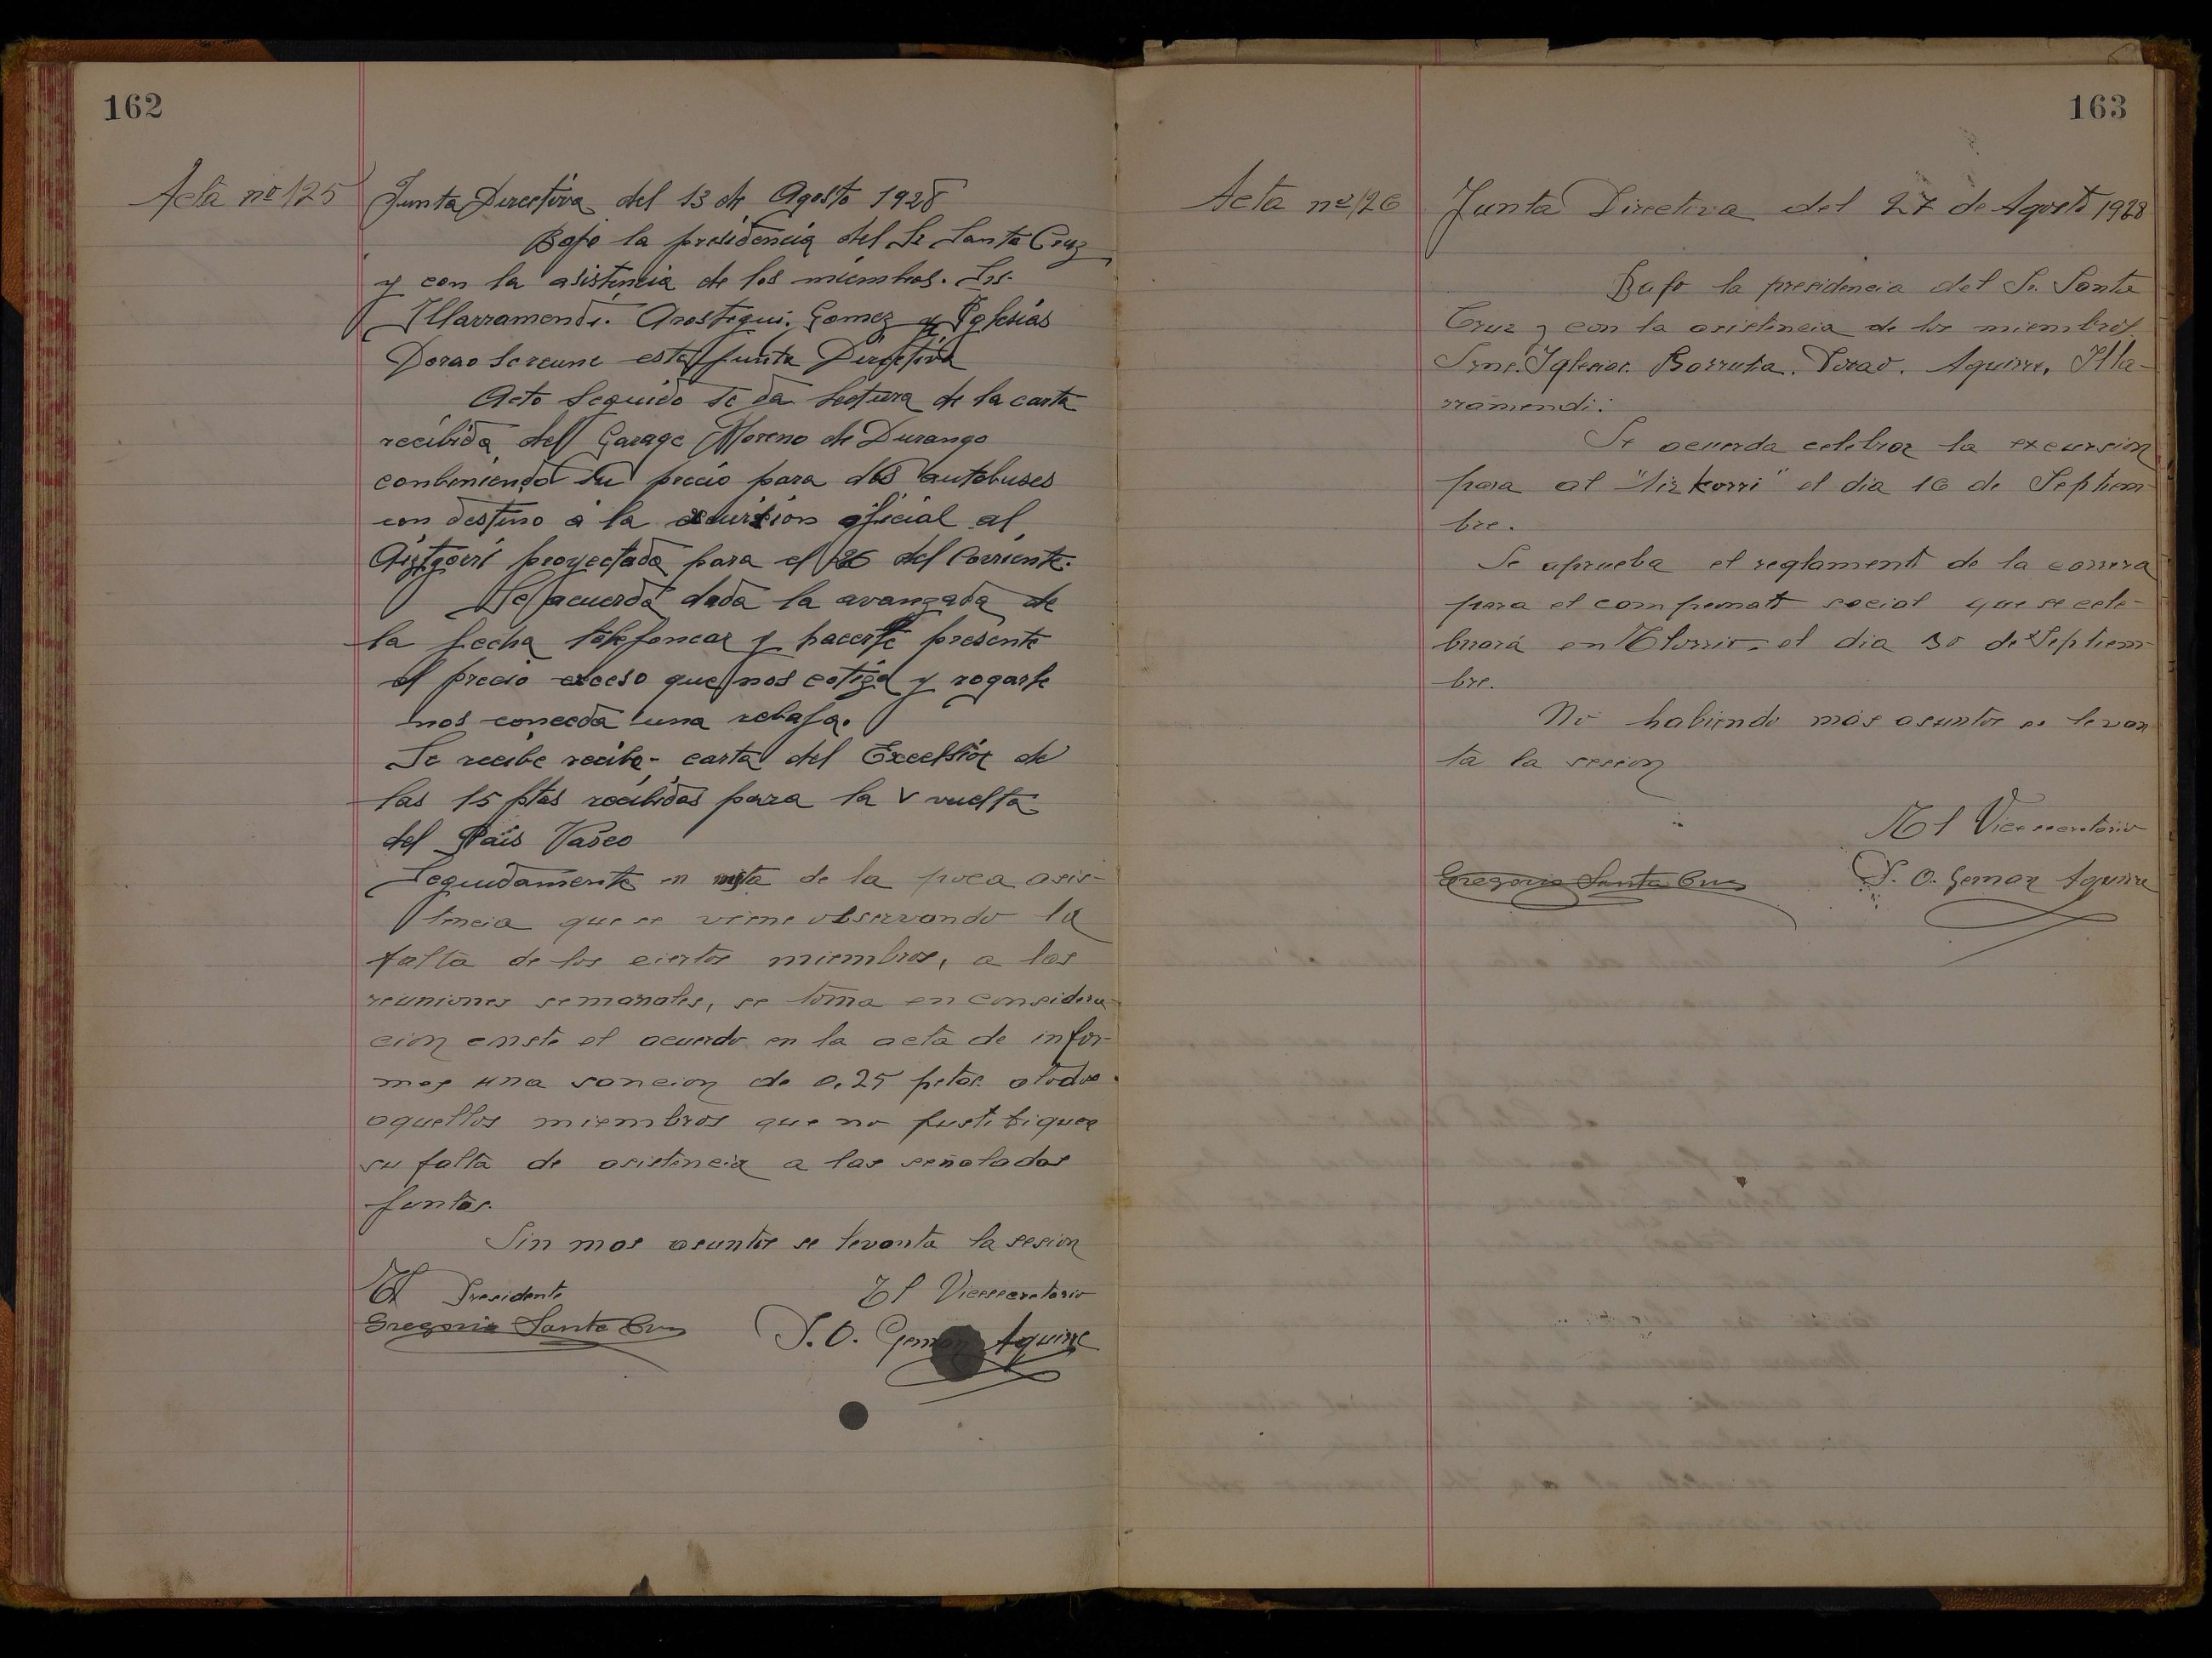 162
Acta nº 125
Junta Directiva del 13 de Agosto 1928
Bajo la presidencia del Sr Santa Cruz
y con la asistencia de los miembros. Srs.
Illarramendi. Arostegui. Gomez y Iglesias
Dorao se reune esta Junta Directiva
Acto seguido se da lectura de la carta
recibida del Garage Moreno de Durango
conbeniendo su precio para dos autobuses
con destino á la excursion oficial al
Aizgorri proyectada para el 26 del Corriente.
Se acuerda dada la avanzada de
la fecha telefonear y hacerle presente
el precio exceso que nos cotiza y rogarle
nos conceda una rebaja.
Se recibe recibo-carta del Excelsior de
las 15 ptas recibidas para la V vuelta
del Pais Vasco
Seguidamente en vista de la poca asis-
tencia que se viene observando la
falta de los ciertos miembros, a las
reuniones semanales, se toma en considera-
cion el acuerdo en la acta de
una sancion de 0,25 petas. a todos
aquellos miembros que no justifiquen
su falta de asistencia a las señaladas
juntas.
Sin mas asuntos se levanta la sesion
El Presidente El Vicesecretario
Gregorio Santa Cruz P. O. German Aguirre
163
Acta nº 126
Junta Directiva del 27 de Agosto 1928
Bajo la presidencia del Sr. Santa
Cruz y con la asistencia de los miembros
Srns. Iglesias. Barruta. Dorao. Aguirre, Illa-
rramendi.
Se acuerda celebrar la excursion
para al "Aizkorri" el dia 16 de Septiem-
bre.
Se aprueba el reglamento de la carrera
para el campeonato social que se cele-
brará en Elorrio el dia 30 de Septiem-
bre.
No habiendo más asuntos se levan
ta la sesion
El Vicesecretario
Gregorio Santa Cruz P. O. German Aguirre